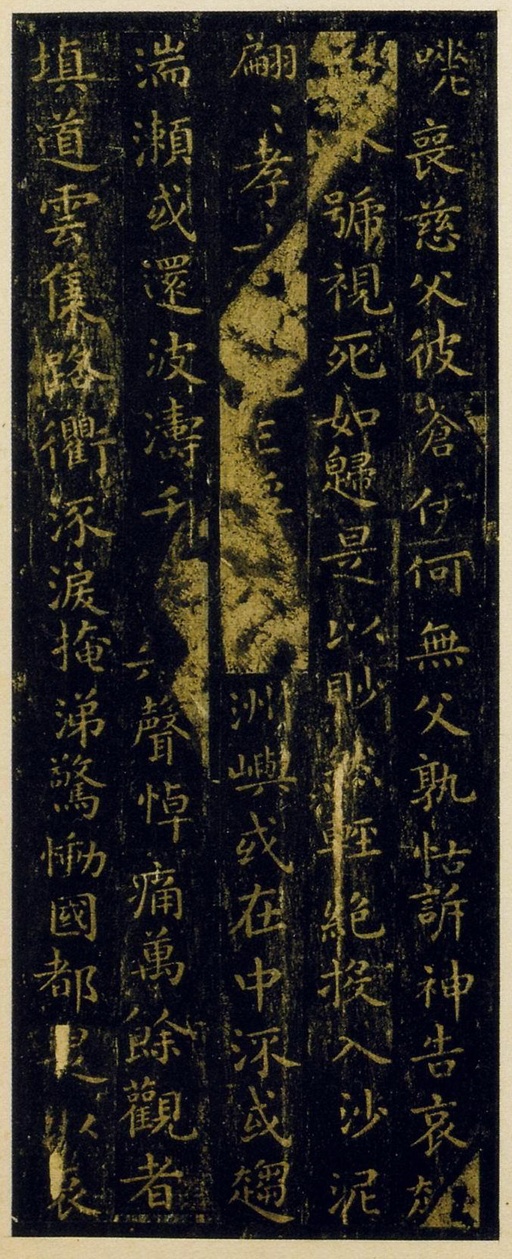 嗟喪慈父彼蒼伊何無父孰怙訴神告哀
號視死如歸是以眇然輕絕投入沙泥
翩〻孝洲嶼或在中流或趨
湍瀨或還波濤千聲悼痛萬餘觀者
填道雲集路衢流淚掩涕驚慟國都是以哀